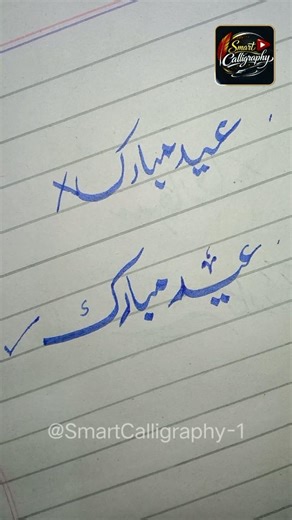 Smart
Calligraphy
عید مبارک
عید مبارک
@SmartCalligraphy-1